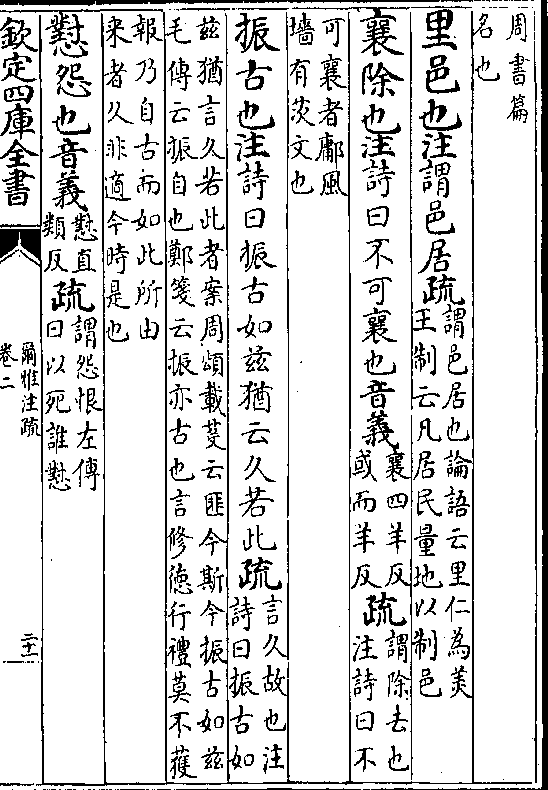 周書篇
名也
里邑也注謂邑居疏謂邑居也論語云里仁為美
王制云凡居民量地以制邑
襄除也注詩曰不可襄也音義襄四羊反
或而羊反疏謂除去也
注詩曰不
可襄者鄘風
墻有茨文也
振古也注詩曰振古如茲猶云久若此疏言久故也注
詩曰振古如
茲猶言久若此者案周頌載芟云匪今斯今振古如茲
毛傳云振自也鄭箋云振亦古也言修德行禮莫不獲
報乃自古而如此所由
来者久非適今時是也
懟怨也音義懟直
類反疏謂怨恨左傳
曰以死誰懟
欽定四庫全書
爾雅注疏
卷二
二十一